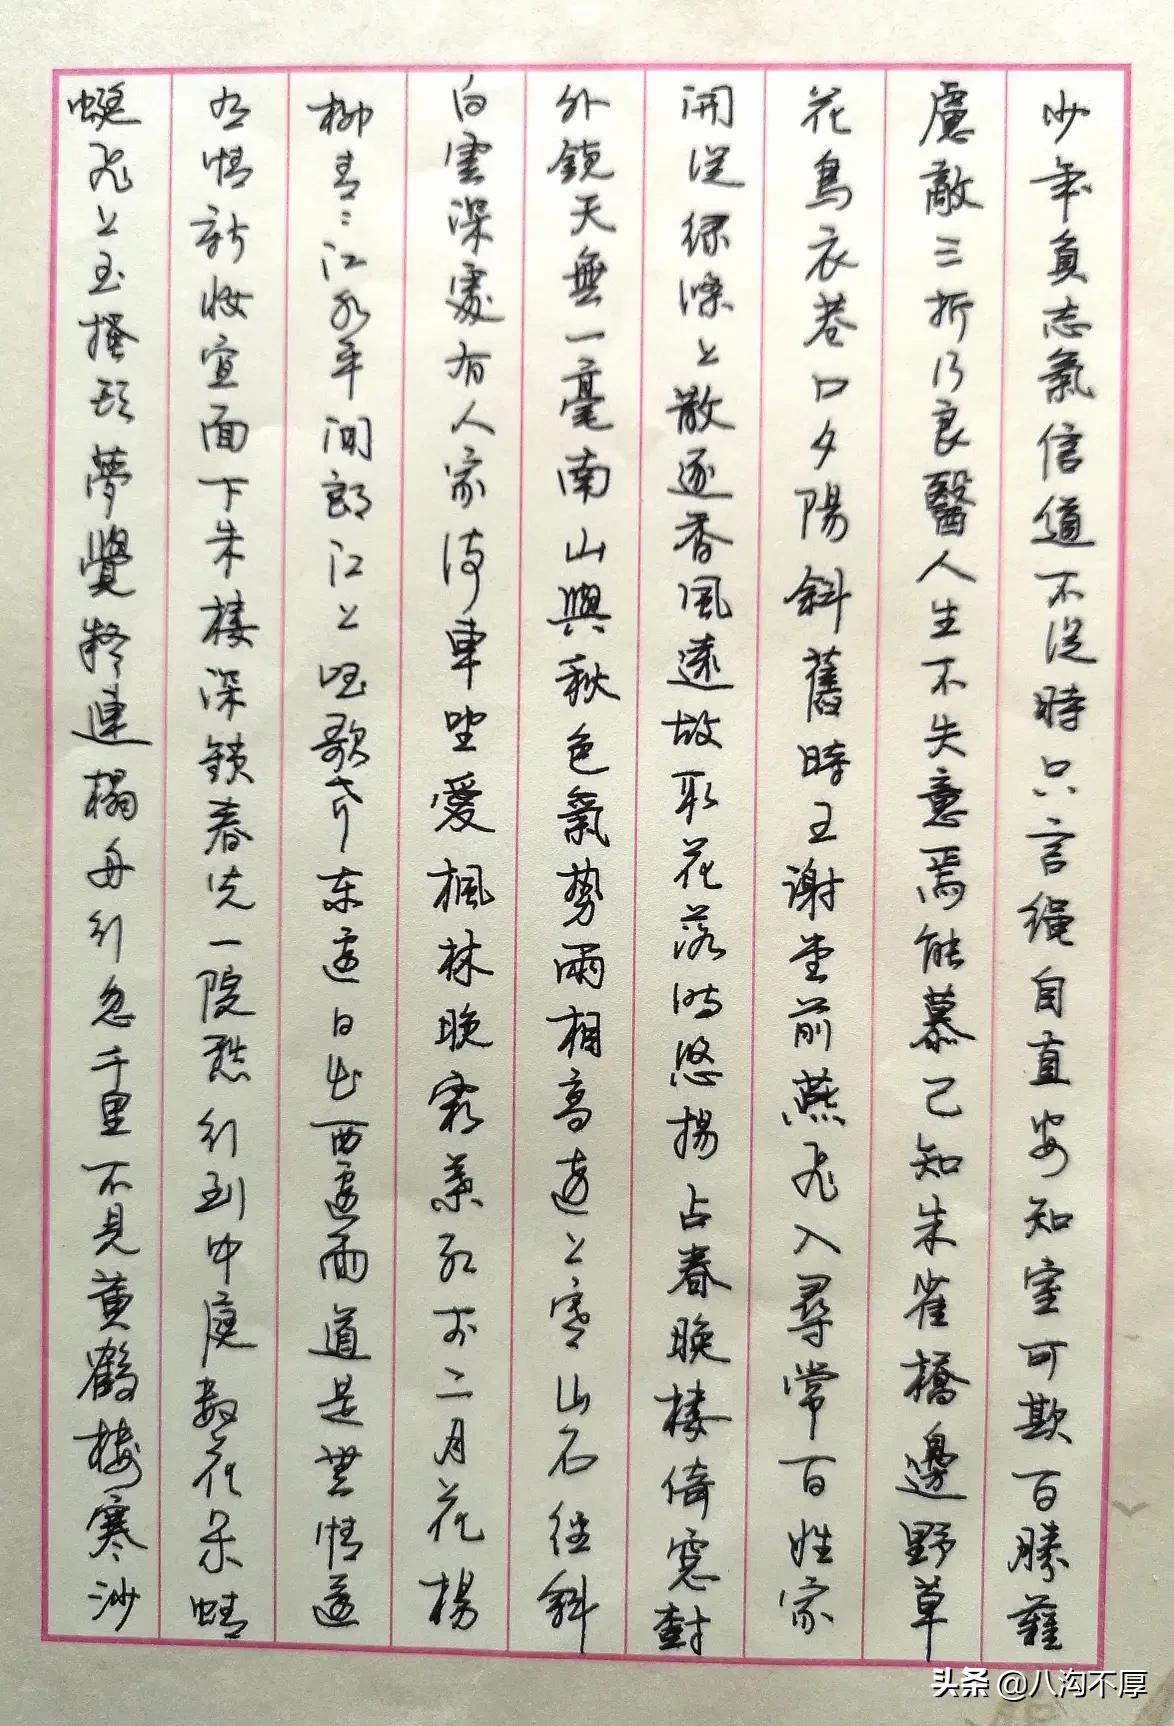 少年負志氣信道不從時只言绳自直安知室可欺百勝難
慮敵三折乃良醫人生不失意焉能慕己知朱雀橋邊野草
花烏衣巷口夕陽斜舊時王謝堂前燕飛入尋常百姓家
開從綠條上散逐香風遠故取花落时悠揚占春晚楼倚霜樹
外鏡天無一毫南山與秋色氣势兩相高遠上寒山石径斜
白雲深處有人家停車坐愛楓林晚霜葉红於二月花楊
柳青〻江水平闻郎江上唱歌声东邊日出西邊雨道是無情還
有情新妝宜面下朱楼深鎖春光一院愁行到中庭数花朵蜻
蜓飛上玉搔頭夢覺疑連榻舟行忽千里不見黄鶴楼寒沙
头条 @八沟不厚